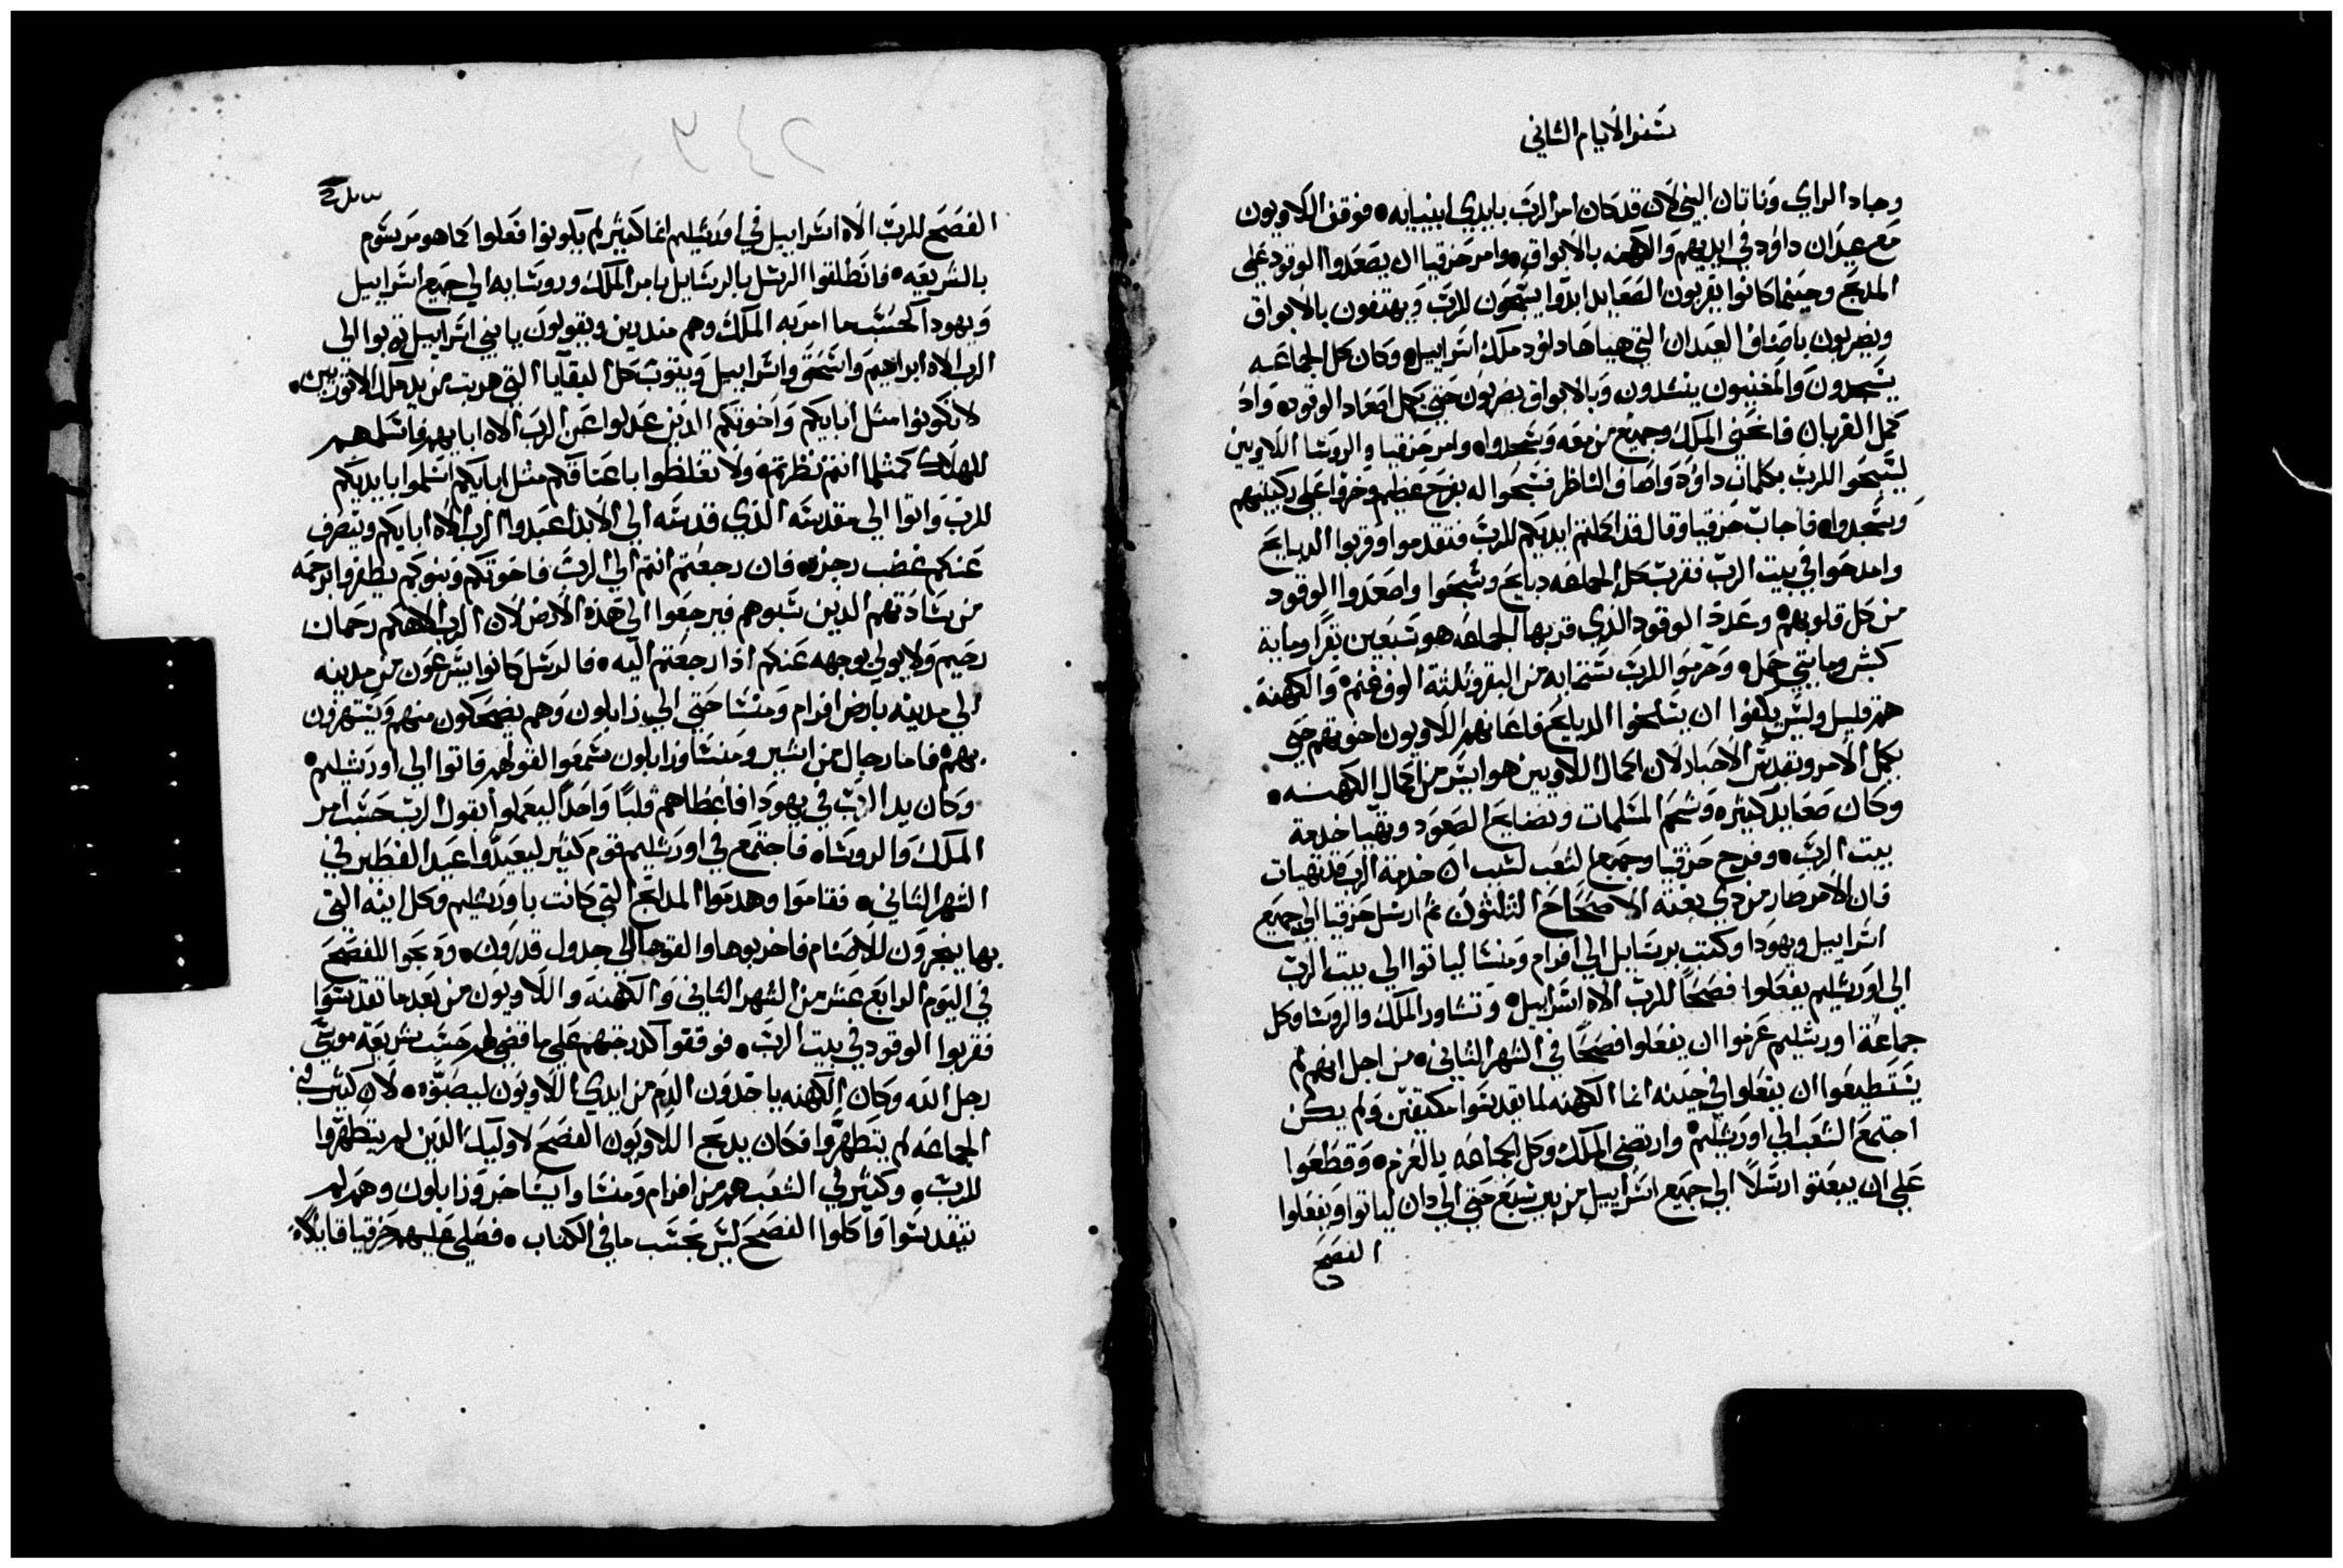 سفر الايام الثاني
وجاد الراي وناتان النبي لان قد كان امر الرب بايدي انبيايه • فوقف اللاويون
مع عيدان داود في ايديهم والكهنه بالابواق • وامر حزقيا ان يصعدوا الوقود علي
المدبح وحينما كانوا يقربون الصعايد ابدوا يسبحون للرب ويهتفون بالابواق
ويضربون باصناف العيدان التي هياها داود ملك اسراييل • وكان كل الجماعه
يسجدون والمغنيون ينشدون وبالابواق يضربون حتي يكمل اصعاد الوقود • واد
كمل القربان فانحني الملك وجميع من معه وسجدوا • وامر حزقيا والروسا اللاويين
ليسبحوا للرب بكلمات داود واصاف الناظر فسبحوا له بفرح عظيم وخروا علي ركبتهم
وسجدوا • فاجاب حزقيا وقال قد اكملتم ايديكم للرب فتقدموا وقربوا الدبايح
وامدحوا في بيت الرب فقرب كل الجماعه دبايح وسبحوا واصعدوا الوقود
من كل قلوبهم • وعدة الوقود الذي قربها الجماعه هو سبعين بقرا وماية
كبش ومايتي حمل • وحرموا للرب ستمايه من البقر وثلثة الوف غنم • والكهنة
هم قليل وليس يكفوا ان يسلخوا الدبايح فاعانهم اللاويون اخوتهم حتي
يكمل الامر وتقدس الاحبار لان اكمال اللاويين هو ايسر من اكمال الكهنه •
وكان صعايد كثيره وشحم المسلمات ونضايح الصعود وتهيا خدمة
بيت الرب • وفرح حزقيا وجميع الشعب لسبب ان خدمة الرب قد تهيات
فان الامر صار من دي بغتة الاصحاح الثلثون ثم ارسل حزقيا الي جميع
اسراييل ويهودا وكتب برسايل الي افرام ومنشا لياتوا الي بيت الرب
الي اورشليم يفعلوا فصحا للرب الاه اسراييل • وتشاور الملك والروسا وكل
جماعة اورشليم عزموا ان يفعلوا فصحا في الشهر الثاني • من اجل انهم لم
يستطيعوا ان يفعلوا في حينه انما الكهنه لما تقدسوا مكتفين ولم يكن
اجتمع الشعب الي اورشليم • وارتضي الملك وكل الجماعه بالعزم • وقطعوا
علي ان يبعتو ارسلا الي جميع اسراييل من بير سبع حتي الي دان لياتوا ويفعلوا
الفصح
الفصح للرب الاه اسراييل في اورشليم انما كثير لم يكونوا فعلوا كما هو مرسوم
بالشريعه • فانطلقوا الرسل بالرسايل بامر الملك وروسايه الي جميع اسراييل
ويهودا كحسب ما امر به الملك وهم مندرين ويقولون يا بني اسراييل توبوا الي
الرب الاه ابراهيم واسحق واسراييل ويتوب كل البقايا التي هربت من يد ملك الاثوريين •
لا تكونوا مثل ابايكم واخوتكم الذين عدلوا عن الرب الاه ابايهم فاسلمهم
للهلاك كمثلما انتم نظرتم • ولا تغلظوا باعناقكم مثل ابايكم اسلموا بايديكم
للرب واتوا الي مقدسه الذي قدسه الي الابد اعبدوا الرب الاه ابايكم ويتصرف
عنكم غضب رجزه • فان رجعتم انتم الي الرب فاخوتكم وبنوكم يظفروا برحمه
من ساداتهم الذين سبوهم فيرجعوا الي هذه الارض لان الرب الاهكم رحمان
رحيم ولا يولي بوجهه عنكم اذا رجعتم اليه • فالرسل كانوا يسرعون من مدينه
الي مدينه بارض افرام ومنشا حتي الي زابلون وهم يضحكون منهم ويستهزون
بهم • فاما رجال من اشير ومنشا وزابلون سمعوا لقولهم فاتوا الي اورشليم •
وكان يد الرب في يهودا فاعطاهم قلبا واحدا ليعملوا بقول الرب حسب امر
الملك والروسا • فاجتمع في اورشليم قوم كثير ليعيدوا عيد الفطير في
الشهر الثاني • فقاموا وهدموا المدابح التي كانت باورشليم وكل انيه التي
بها يبخرون للاصنام فاخربوها والقوها في جدول قدرون • ودبحوا للفصح
في اليوم الرابع عشر من الشهر الثاني والكهنة واللاويون من بعد ما تقدسوا
فقربوا الوقود في بيت الرب • فوقفوا كدرجتهم علي ما قضي لهم حسب شريعة موسي
رجل الله وكان الكهنه ياخدون الدم من ايدي اللاويون ليصبوه • لان كثير في
الجماعه لم يتطهروا فكان يدبح اللاويون الفصح لاوليك الذين لم يتطهروا
للرب • وكثير في الشعب هم من افرام ومنشا وايساخر وزابلون وهم لم
يتقدسوا واكلوا الفصح ليس بحسب ما في الكتاب • فصلي عليهم حزقيا قايلا